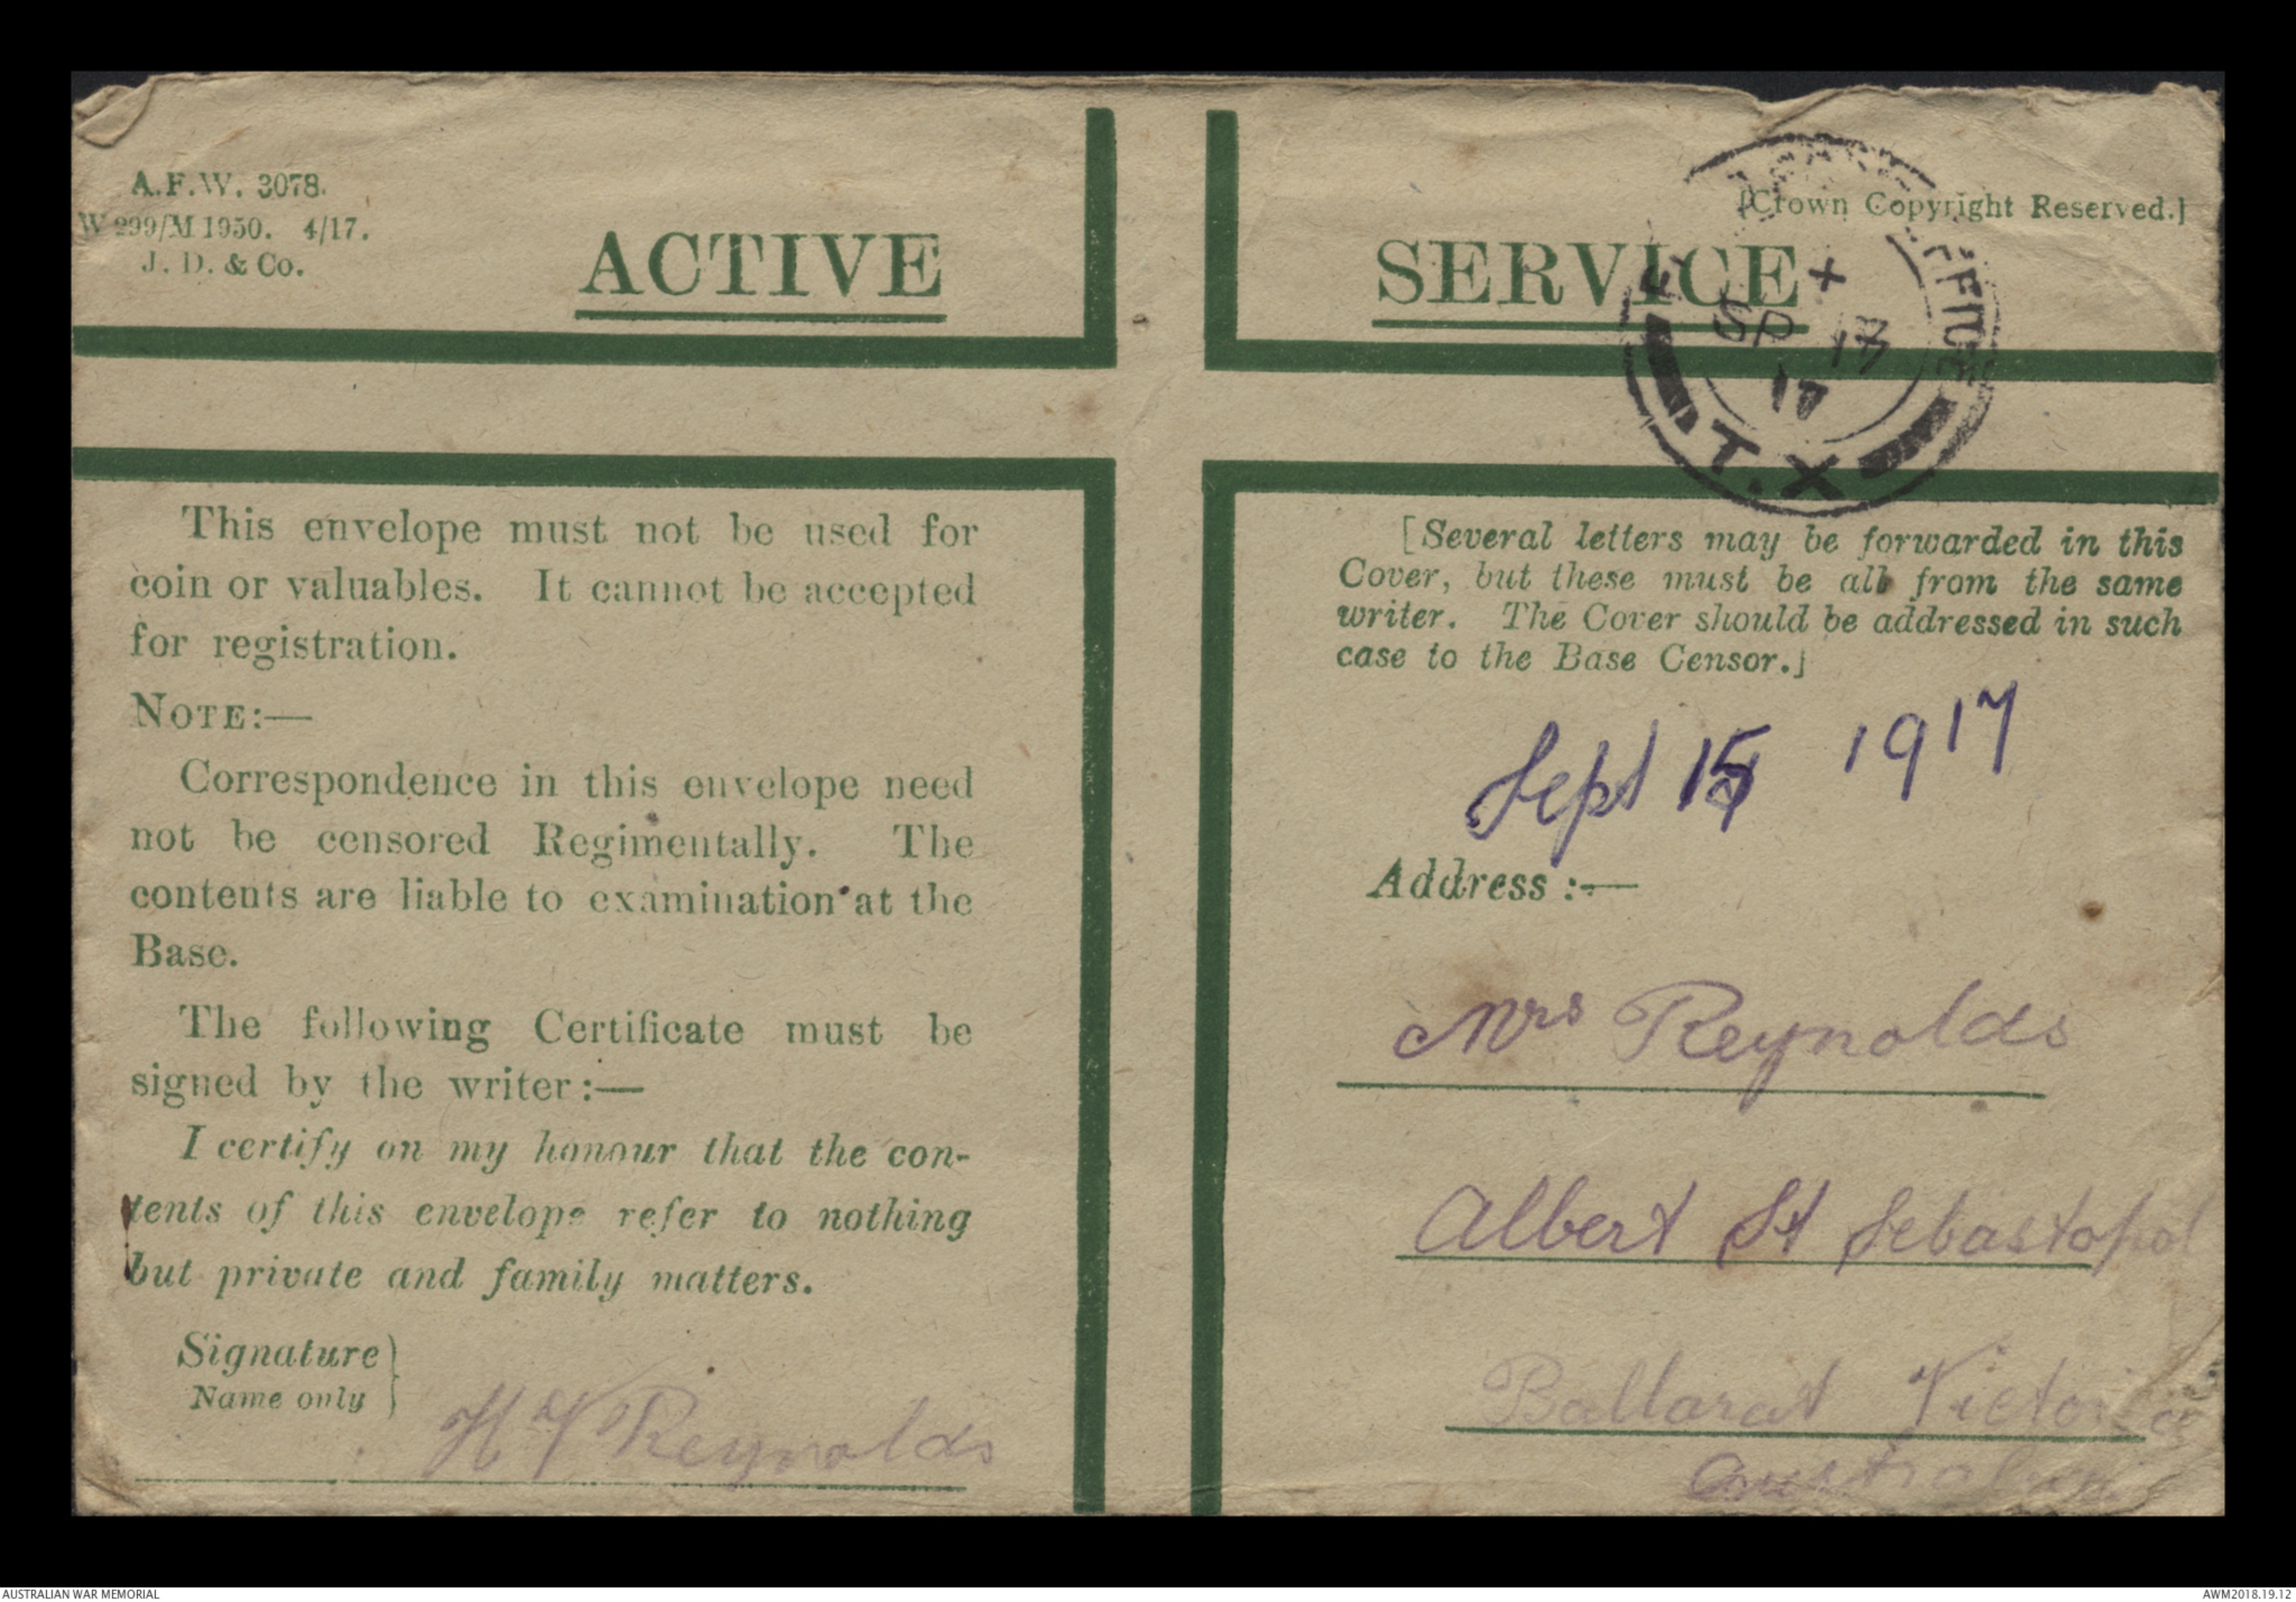 A.F.W. 3078.
W 299/M 1950. 4/17.
J. D. & Co.
ACTIVE
SERVICE
[Crown Copyright Reserved.]
SP 13
17
T.X
This envelope must not be used for
coin or valuables. It cannot be accepted
for registration.
NOTE:—
Correspondence in this envelope need
not be censored Regimentally. The
contents are liable to examination at the
Base.
The following Certificate must be
signed by the writer:—
I certify on my honour that the con-
tents of this envelope refer to nothing
but private and family matters.
Signature
Name only
H V Reynolds
[Several letters may be forwarded in this
Cover, but these must be all from the same
writer. The Cover should be addressed in such
case to the Base Censor.]
Sept 1917
Address :—
Mrs Reynolds
Albert St Sebastopol
Ballarat Victoria
Australia
AUSTRALIAN WAR MEMORIAL
AWM2018.19.12